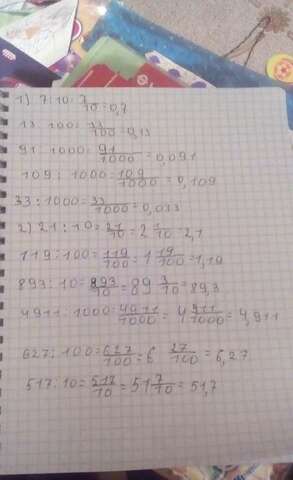 1) 7:10=7/10=0,7
13:100=13/100=0,13
91:1000=91/1000=0,091
109:1000=109/1000=0,109
33:1000=33/1000=0,033
2) 21:10=21/10=2 1/10=2,1
119:100=119/100=1 19/100=1,19
893:10=893/10=89 3/10=89,3
4911:1000=4911/1000=4 911/1000=4,911
627:100=627/100=6 27/100=6,27
517:10=517/10=51 7/10=51,7